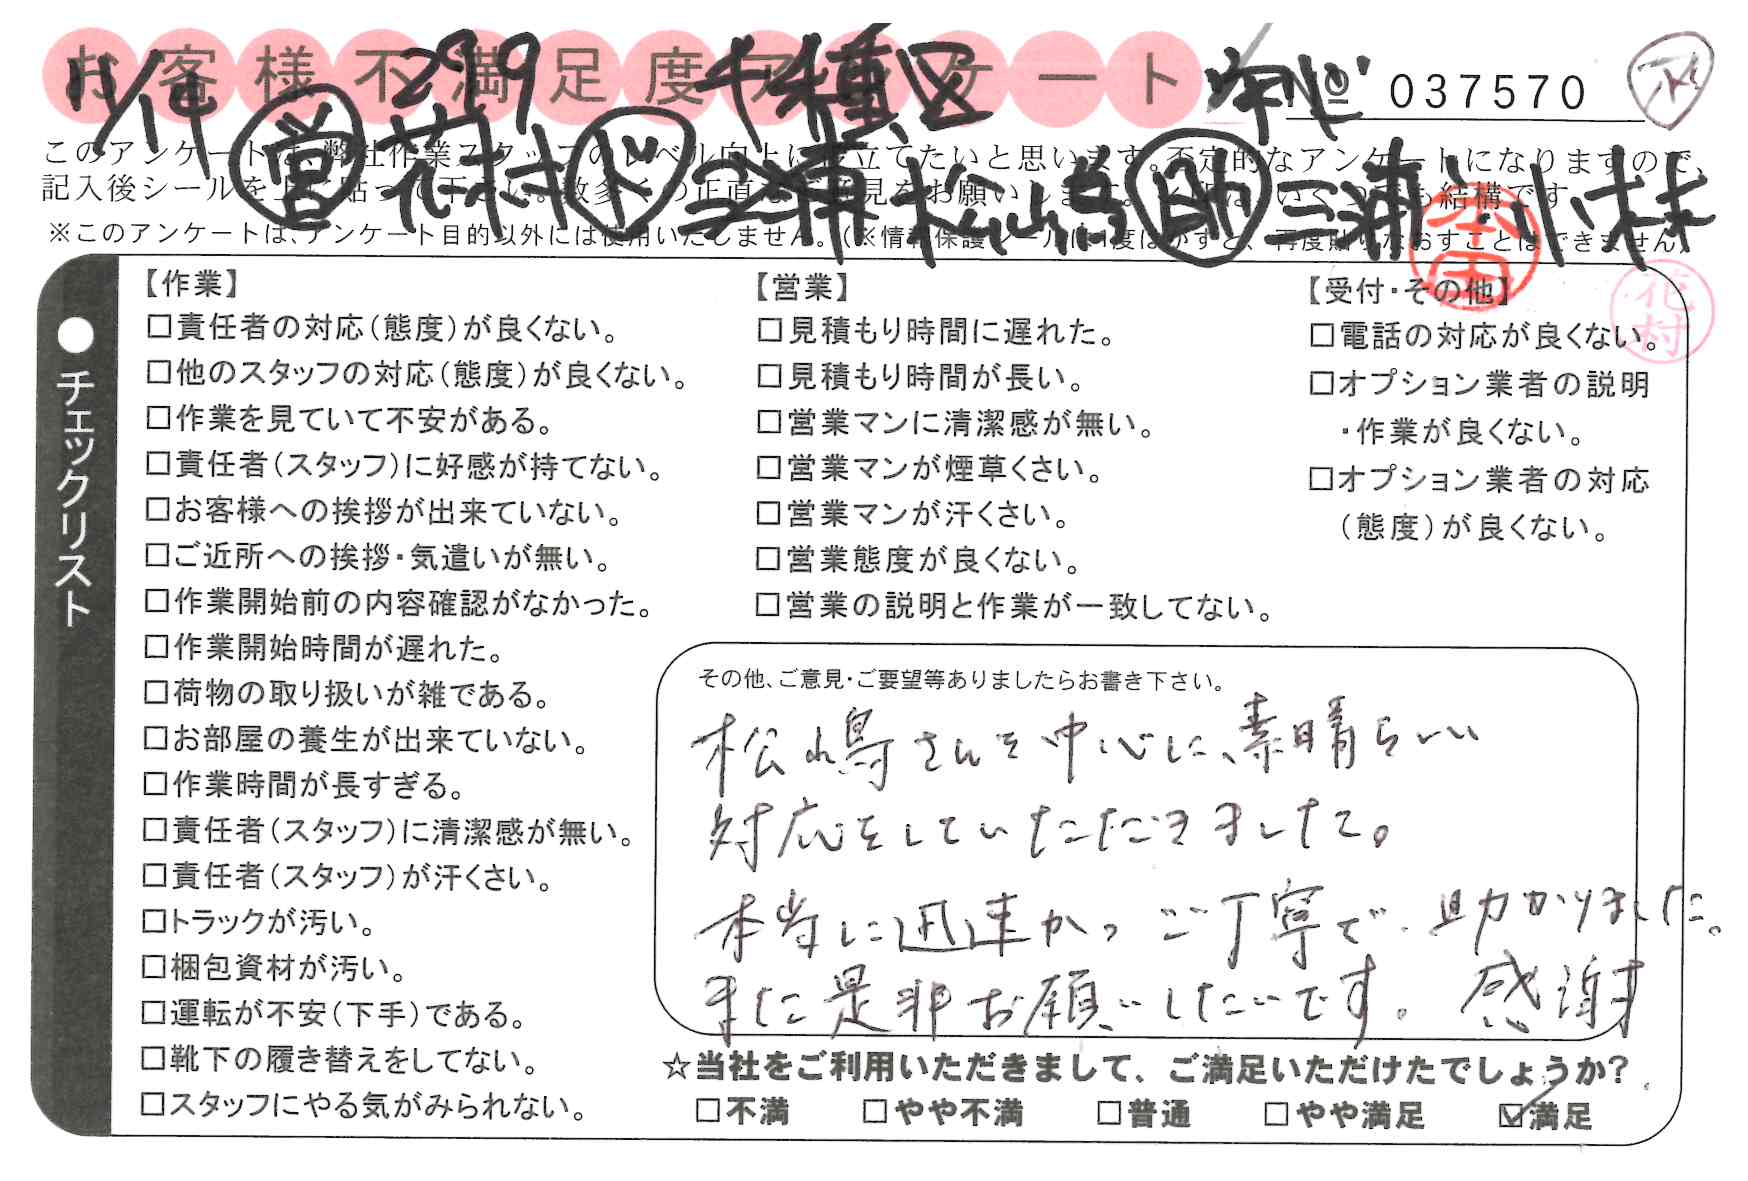 お客様不満足度アンケート
No 037570
11/14 2919 千種区
営 花村 ド 三浦、松嶋 助 三浦、小林
このアンケートは、弊社作業スタッフのレベル向上に役立てたいと思います。不定的なアンケートになりますので、
記入後シールを上に貼って下さい。数多くの正直なご意見をお願いします。
※このアンケートは、アンケート目的以外には使用いたしません。(※情報保護シールは1度はがすと、再度貼りなおすことはできません)
本田
花村
●チェックリスト
【作業】
□責任者の対応(態度)が良くない。
□他のスタッフの対応(態度)が良くない。
□作業を見ていて不安がある。
□責任者(スタッフ)に好感が持てない。
□お客様への挨拶が出来ていない。
□ご近所への挨拶・気遣いが無い。
□作業開始前の内容確認がなかった。
□作業開始時間が遅れた。
□荷物の取り扱いが雑である。
□お部屋の養生が出来ていない。
□作業時間が長すぎる。
□責任者(スタッフ)に清潔感が無い。
□責任者(スタッフ)が汗くさい。
□トラックが汚い。
□梱包資材が汚い。
□運転が不安(下手)である。
□靴下の履き替えをしてない。
□スタッフにやる気がみられない。
【営業】
□見積もり時間に遅れた。
□見積もり時間が長い。
□営業マンに清潔感が無い。
□営業マンが煙草くさい。
□営業マンが汗くさい。
□営業態度が良くない。
□営業の説明と作業が一致してない。
【受付・その他】
□電話の対応が良くない。
□オプション業者の説明
・作業が良くない。
□オプション業者の対応
(態度)が良くない。
その他、ご意見・ご要望等ありましたらお書き下さい。
松嶋さんを中心に、素晴らしい
対応をしていただきました。
本当に迅速かつご丁寧で、助かりました。
また是非お願いしたいです。感謝
☆当社をご利用いただきまして、ご満足いただけたでしょうか?
□不満 □やや不満 □普通 □やや満足 ☑満足